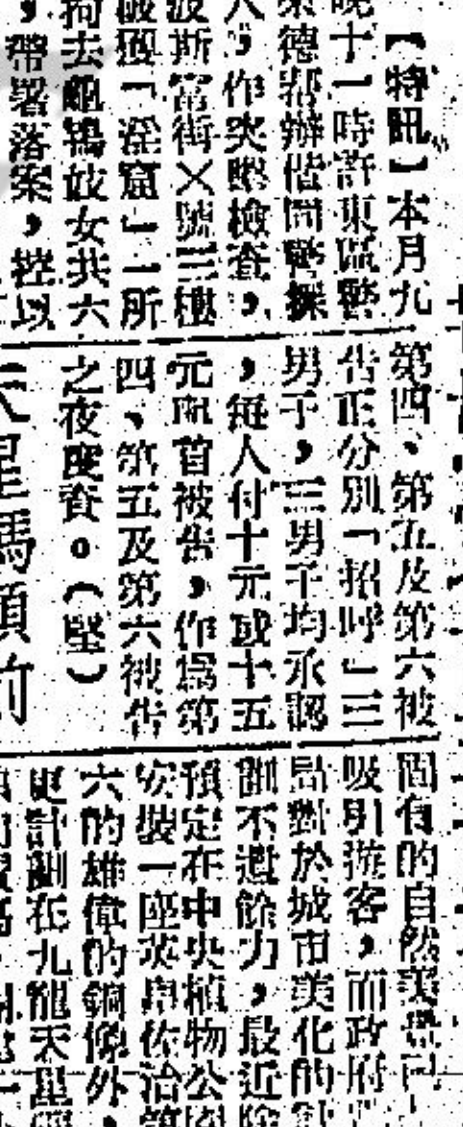 【特訊】本月九
晚十一時許東區警
東德幫辦偕同警探
人，作突擊檢查，
波斯富街×號三樓
破獲「淫窟」一所
拘去龜鴇妓女共六
，帶署落案，控以
第四、第五及第六被
告正分別「招呼」三
男子，三男子均承認
，每人付十元或十五
元與首被告，作爲第
四、第五及第六被告
之夜度資。（堅）
天星碼頭前
間有的自然美景已
吸引遊客，而政府
當局對於城市美化的計
劃不遺餘力，最近除
預定在中央植物公園
安裝一座英皇佐治第
六的雄偉的銅像外，
更計劃在九龍天星